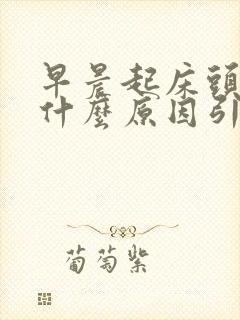 早晨起床頭
什麼原因引
葡萄紫